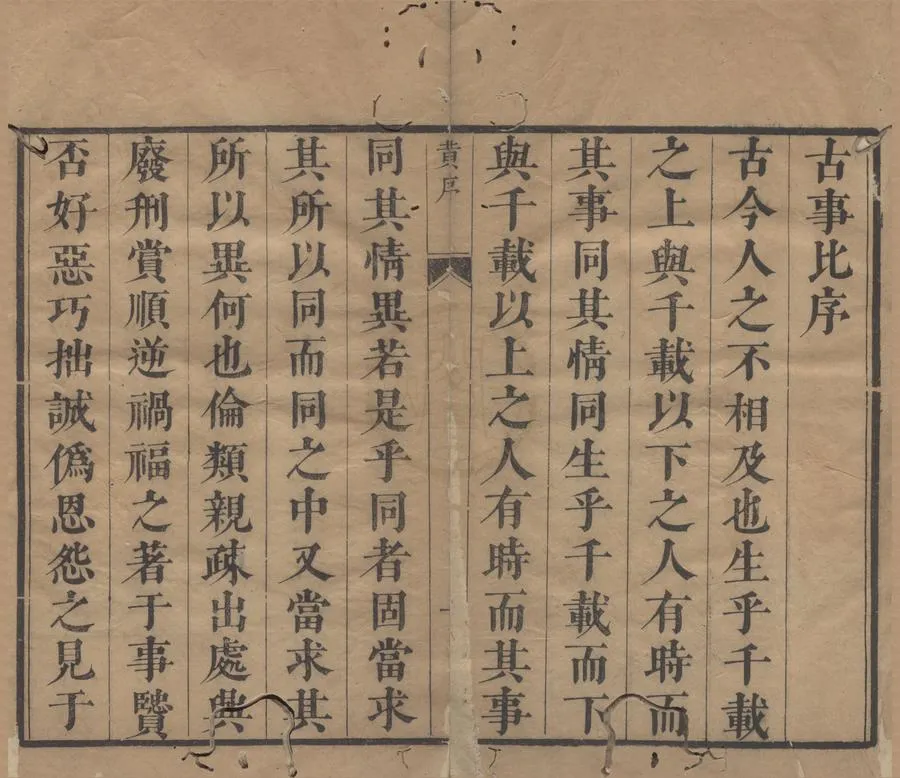 古事比序
古今人之不相及也生乎千載
之上與千載以下之人有時而
其事同其情同生乎千載而下
與千載以上之人有時而其事
黄序
一
同其情異若是乎同者固當求
其所以同而同之中又當求其
所以異何也倫類親疎出處與
廢刑賞順逆禍福之著于事贒
否好惡巧拙誠僞恩怨之見于